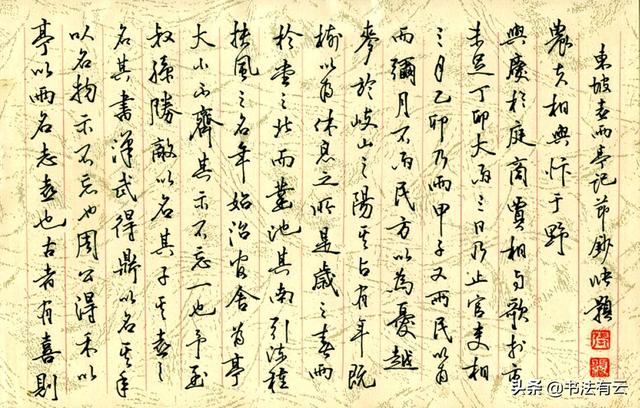 亭以雨名志喜也古者有喜則
以名物示不忘也周公得禾以
名其書漢武得鼎以名其年
叔孫勝敵以名其子其喜之
大小不齊其示不忘一也予至
扶風之名年始治官舍為亭
於堂之北而鑿池其南引流種
樹以為休息之所是歲之春雨
麥於岐山之陽其占有年既
而彌月不雨民方以為憂越
三月乙卯乃雨甲子又雨民以為
未足丁卯大雨三日乃止官吏相
與慶於庭商賈相與歌於市
農夫相與忭于野
東坡喜雨亭記節鈔題
头条 @书法有云